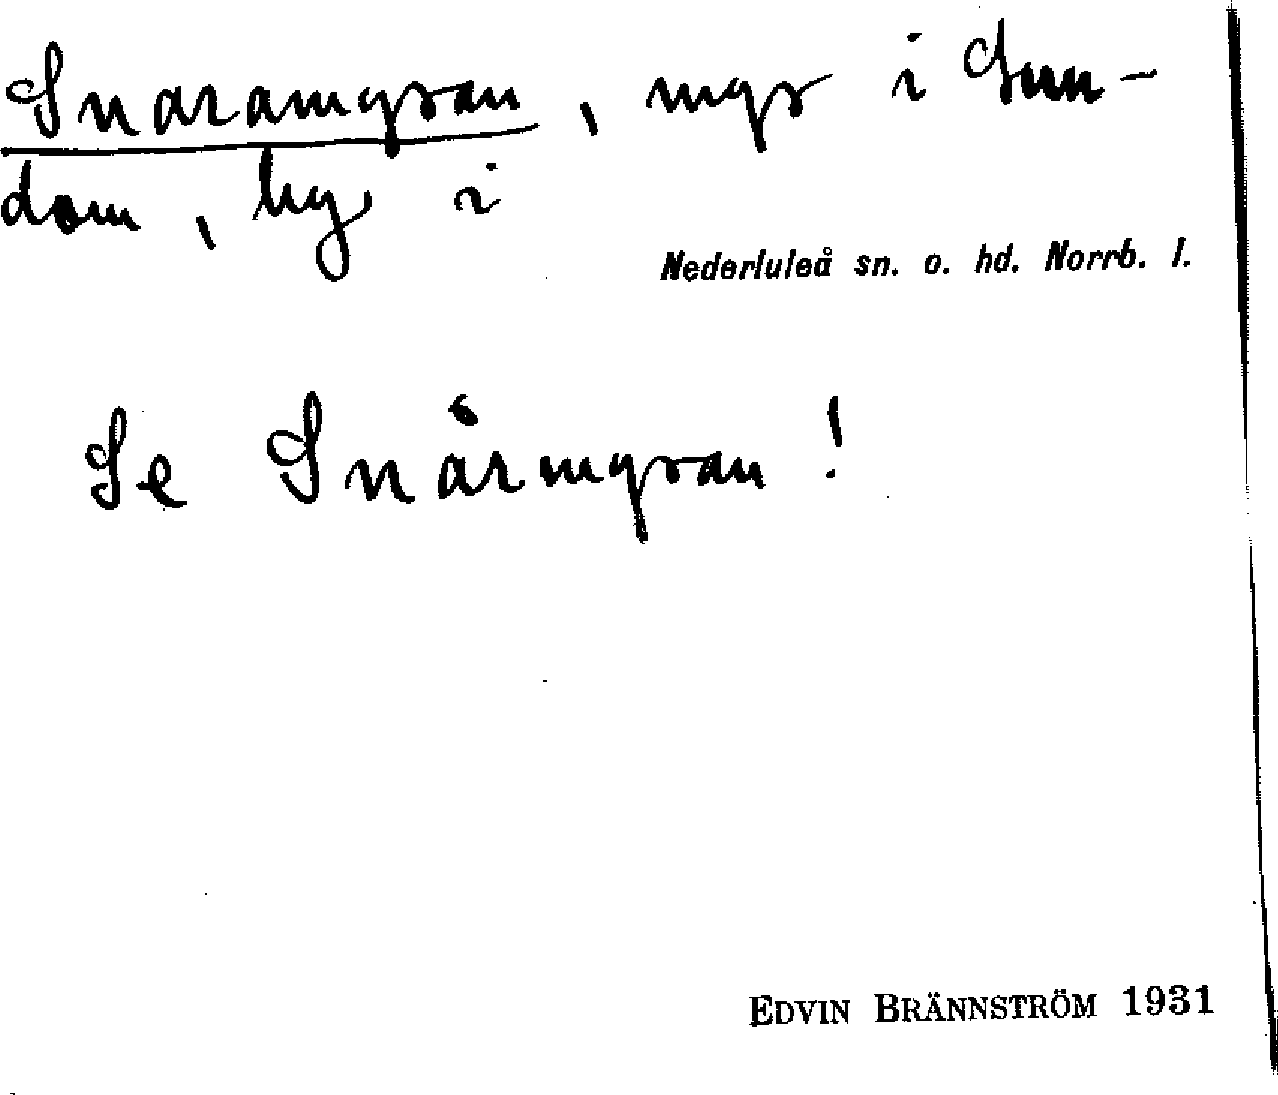 Snaramyran, myr i Sun-
dom, by i
Nederluleå sn. o. hd. Norrb. l.
Se Snårmyran!
EDVIN BRÄNNSTRÖM 1931